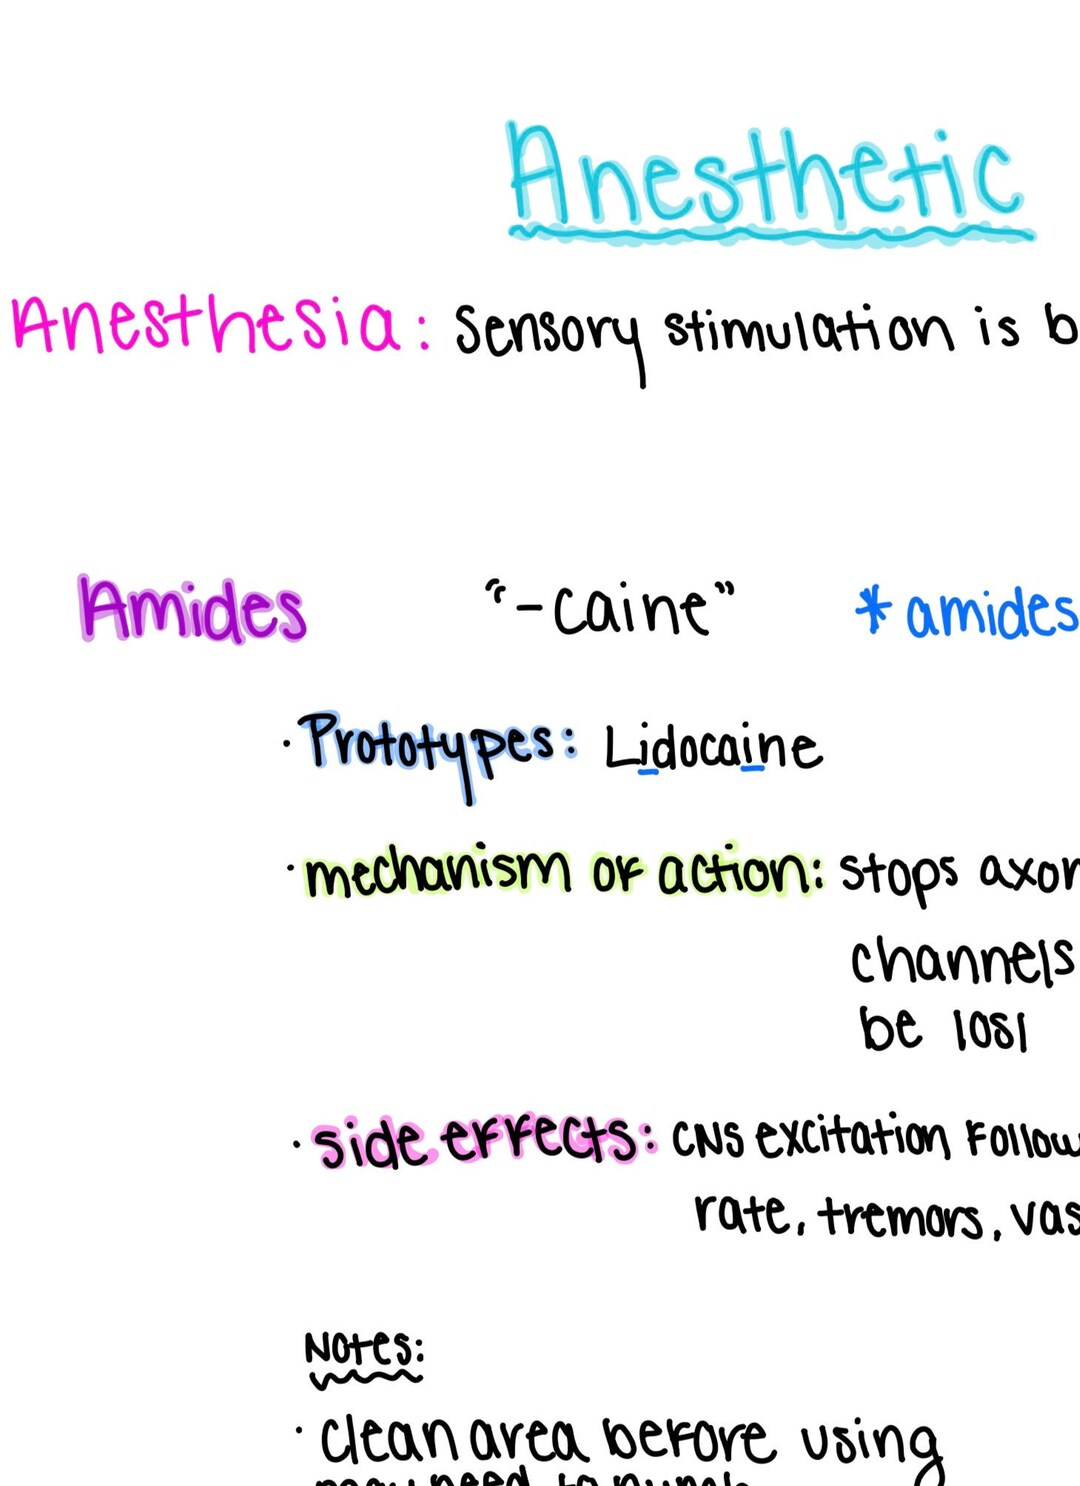 Anesthetic
Anesthesia: Sensory stimulation is b
Amides "-caine" * amides
· Prototypes: Lidocaine
· mechanism of action: stops axon
channels
be lost
· side effects: CNS excitation follow
rate, tremors, vas
Notes:
· clean area before using
may need to numb